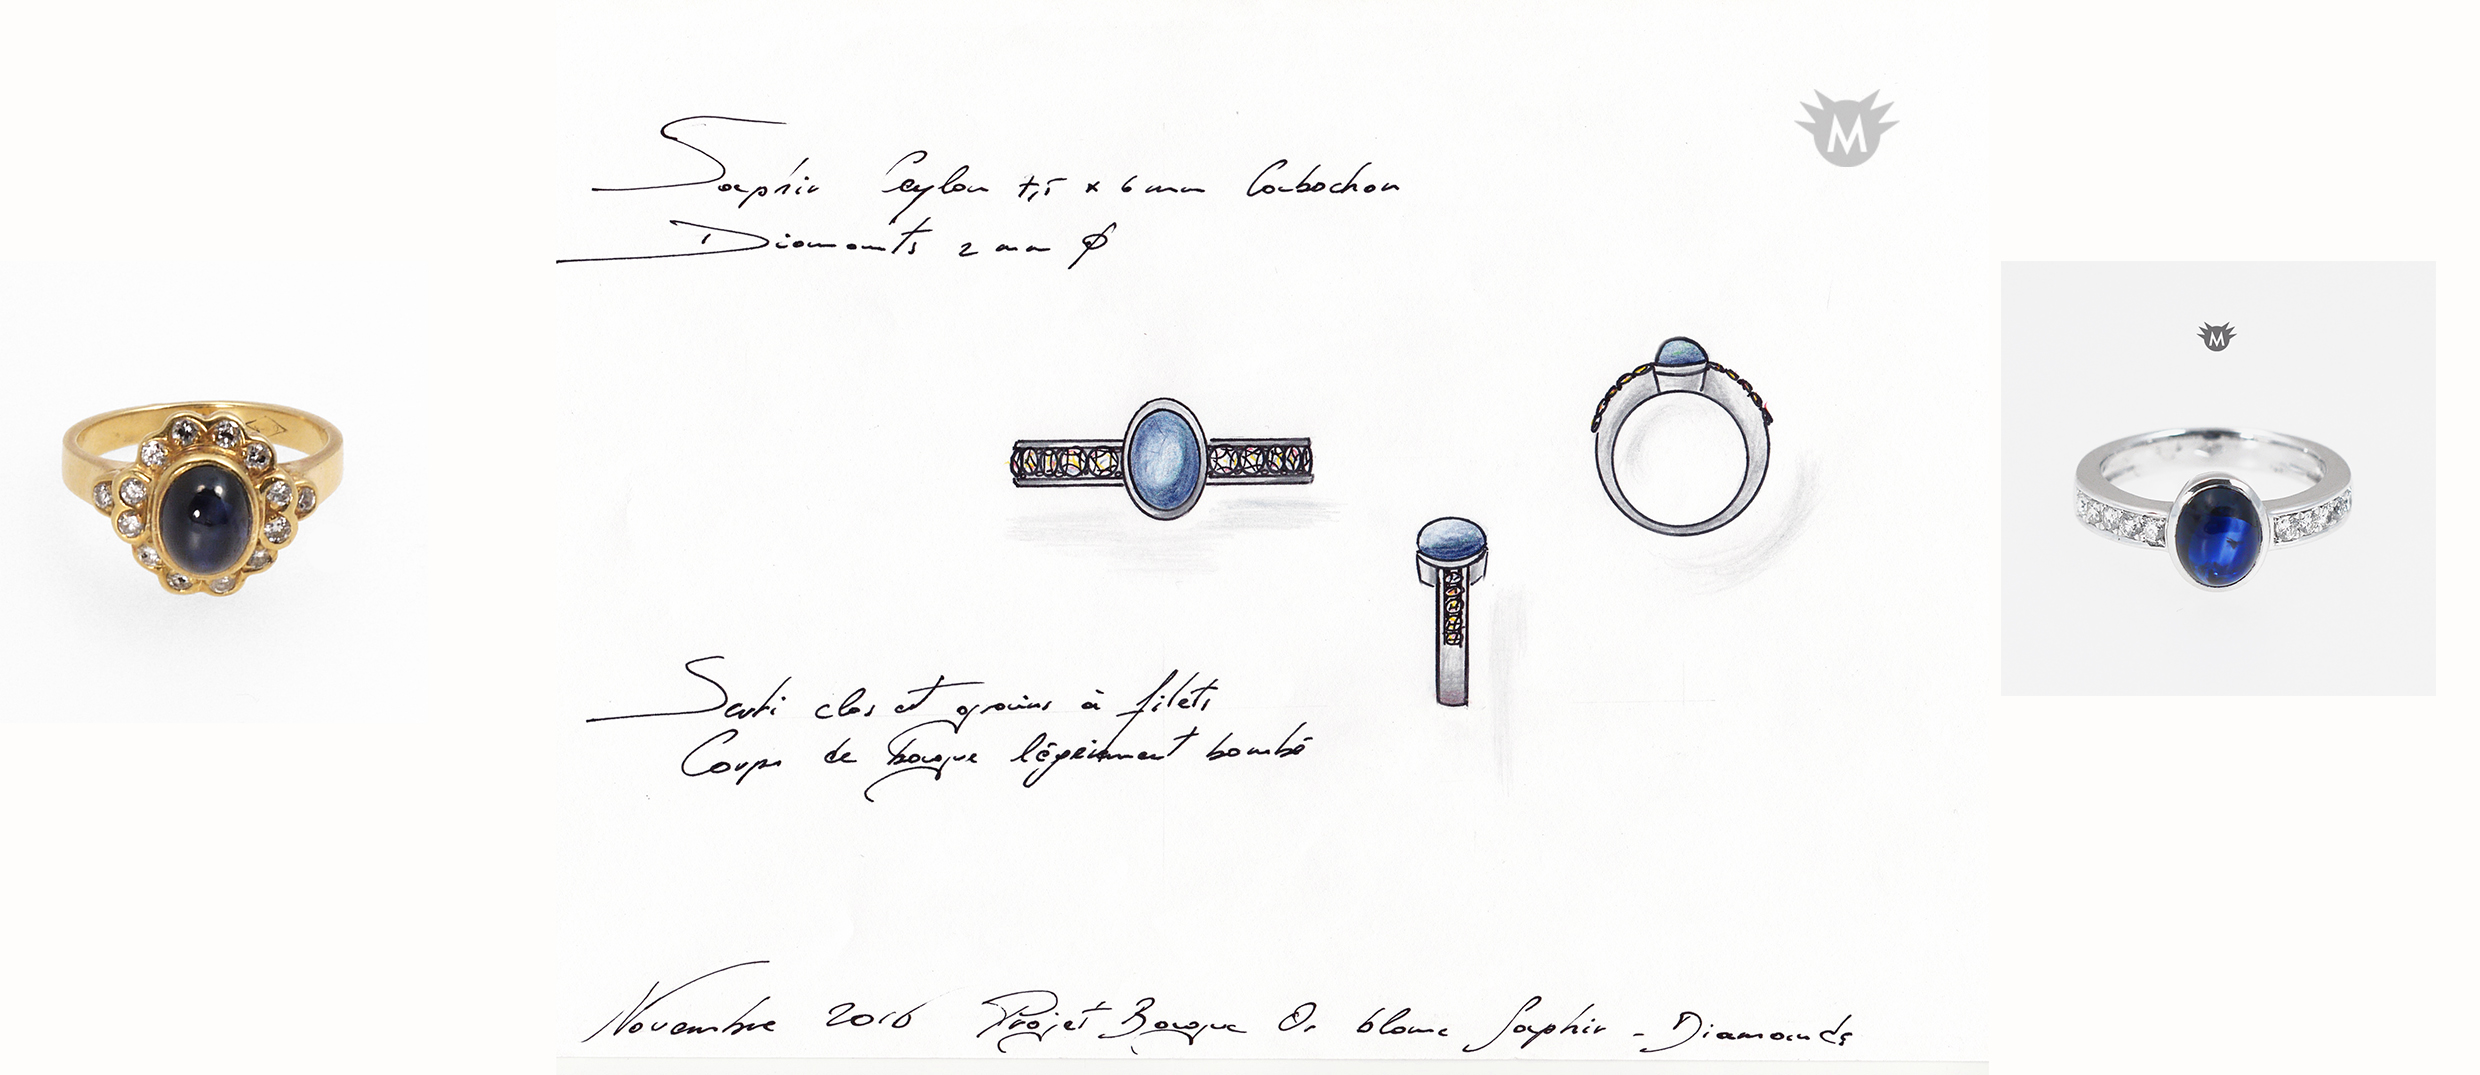 M
Saphir Ceylan 7,5 x 6 mm Cabochon
Diamants 2 mm Ø
Serti clos et grains à filets
Corps de Bague légèrement bombé
Novembre 2016 Projet Bague Or blanc Saphir - Diamands
M